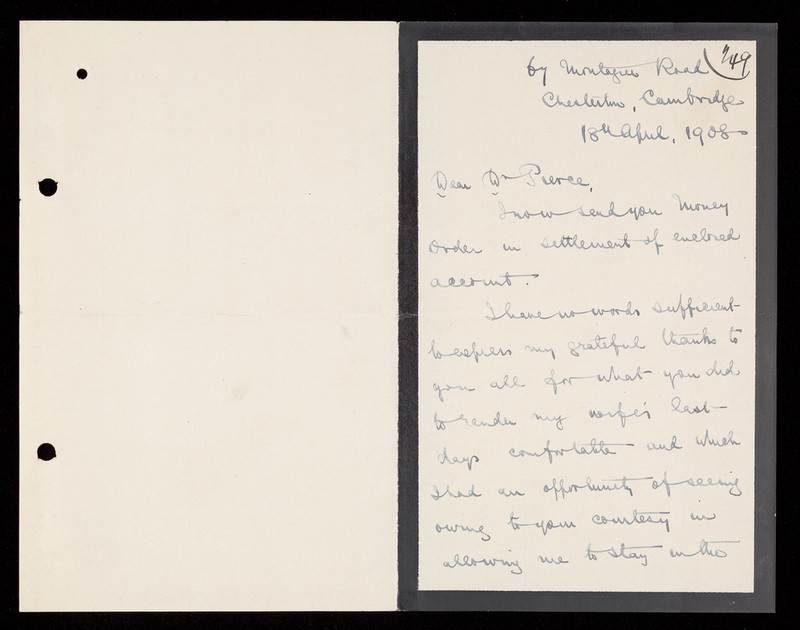 67 Montague Road
749
Chesterton, Cambridge
18th April, 1908
Dear Dr Pierce,
I now send you Money
Order in settlement of enclosed
account.
I have no words sufficient
to express my grateful thanks to
you all for what you did
to render my wife's last
days comfortable and which
I had an opportunity of seeing
owing to your courtesy in
allowing me to stay in the